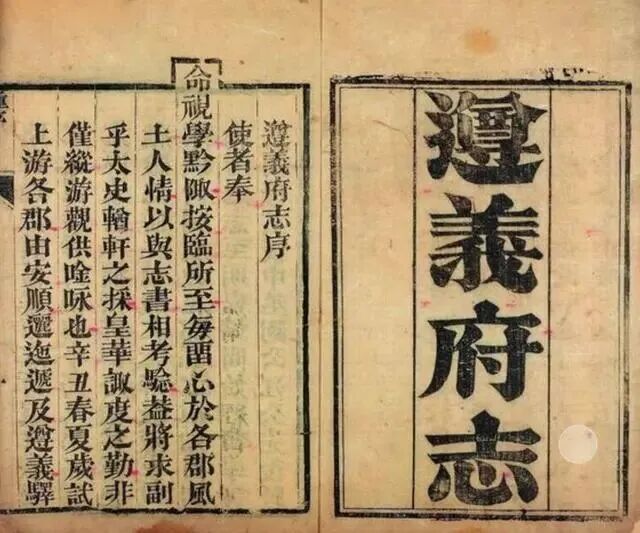 遵義府志
遵義府志序
使者奉
命視學黔陬按臨所至每畱心於各郡風
土人情以與志書相考驗益將求副
乎太史輶軒之採皇華諏度之勤非
僅縱游觀供唫咏也辛丑春夏歲試
上游各郡由安順邐迤遞及遵義驛